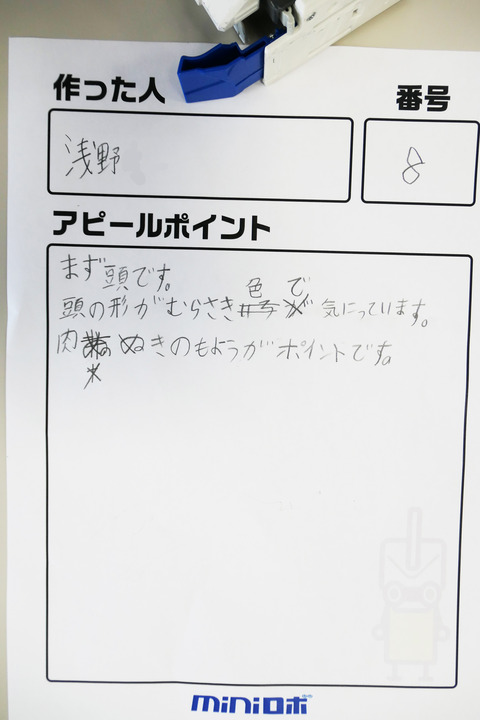 作った人
番号
浅野
8
アピールポイント
まず頭です。
頭の形がむらさき色で気にっています。
肉ぬきのもようがポイントです。
miniロボ